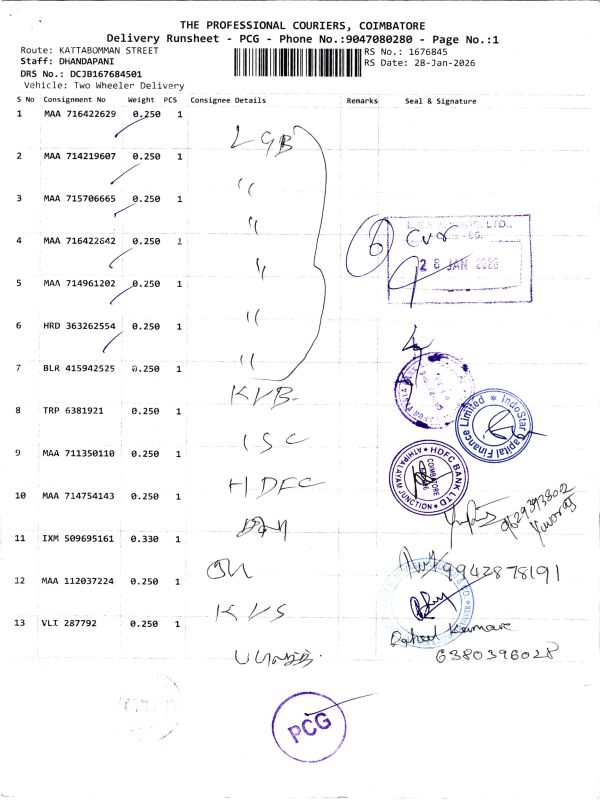 THE PROFESSIONAL COURIERS, COIMBATORE
Delivery Runsheet - PCG - Phone No.:9047080280 - Page No.:1
Route: KATTABOMMAN STREET
RS No.: 1676845
Staff: DHANDAPANI
RS Date: 28-Jan-2026
DRS No.: DCJB167684501
Vehicle: Two Wheeler Delivery
S No Consignment No Weight PCS Consignee Details Remarks Seal & Signature
1 MAA 716422629 0.250 1
LGB
2 MAA 714219607 0.250 1
"
3 MAA 715706665 0.250 1
"
4 MAA 716422642 0.250 1
"
5 MAA 714961202 0.250 1
"
6 HRD 363262554 0.250 1
"
7 BLR 415942525 0.250 1
KVB
8 TRP 6381921 0.250 1
ISC
9 MAA 711350110 0.250 1
HDFC
10 MAA 714754143 0.250 1
11 IXM 509695161 0.330 1
12 MAA 112037224 0.250 1
KVS
13 VLI 287792 0.250 1
6
28 JAN 2026
IndoStar Capital Finance Limited
HDFC BANK LTD
COIMBATORE
ATHIPALAYAM JUNCTION
Yuvaraj
9942878191
6380396028
PCG